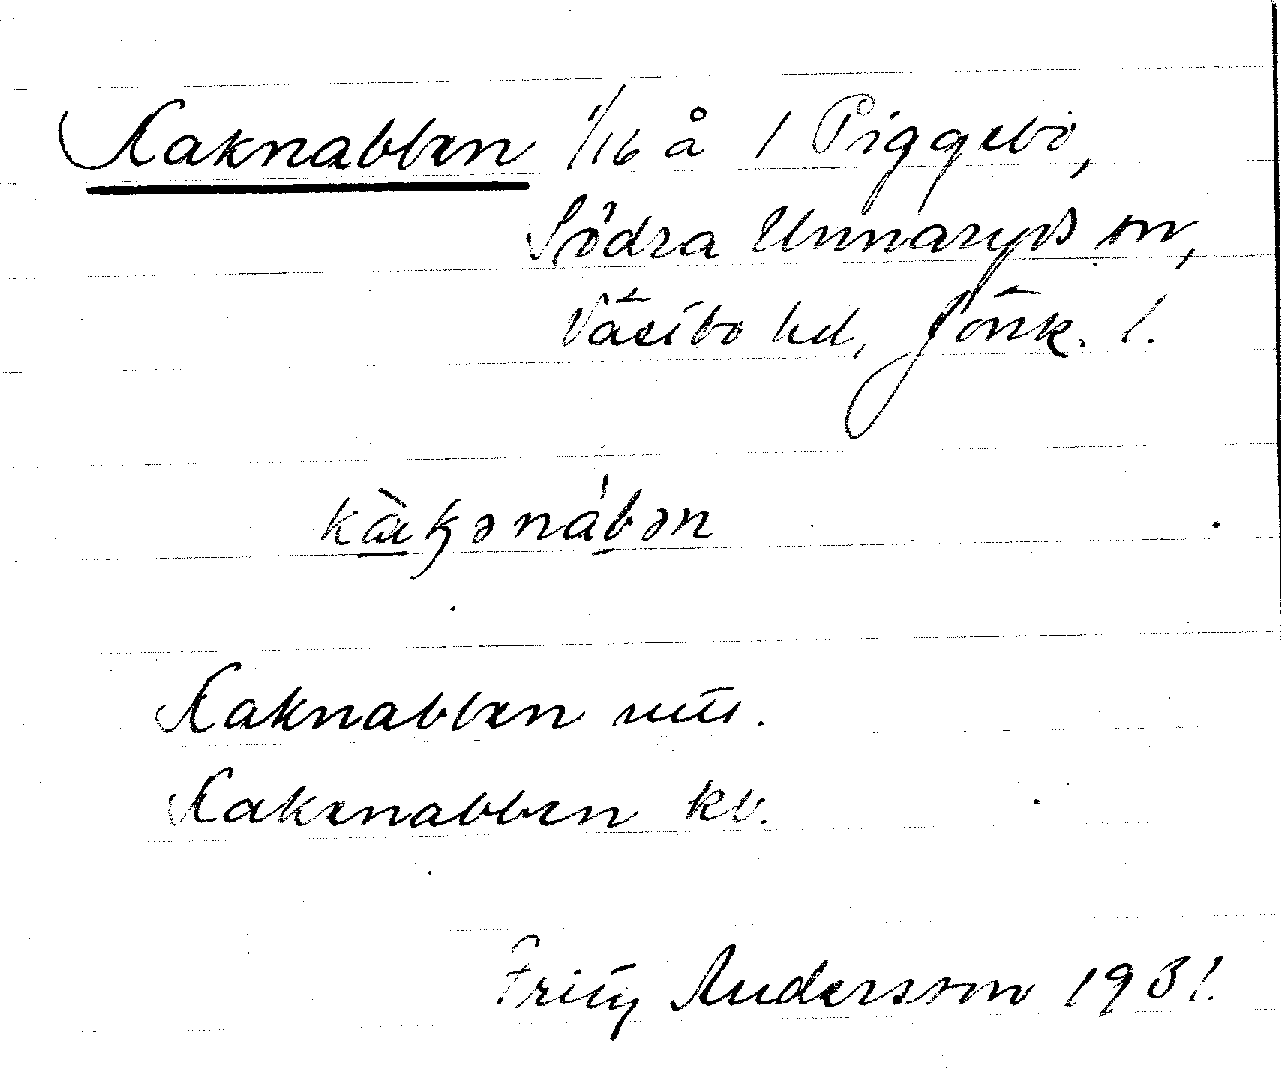 Kaknabben 1/16 å 1 Piggebo,
Södra Unnaryds sn,
Västbo hd, Jönk. l.
Kaknabben
Kakenabben kb.
Fritz Andersson 1931.